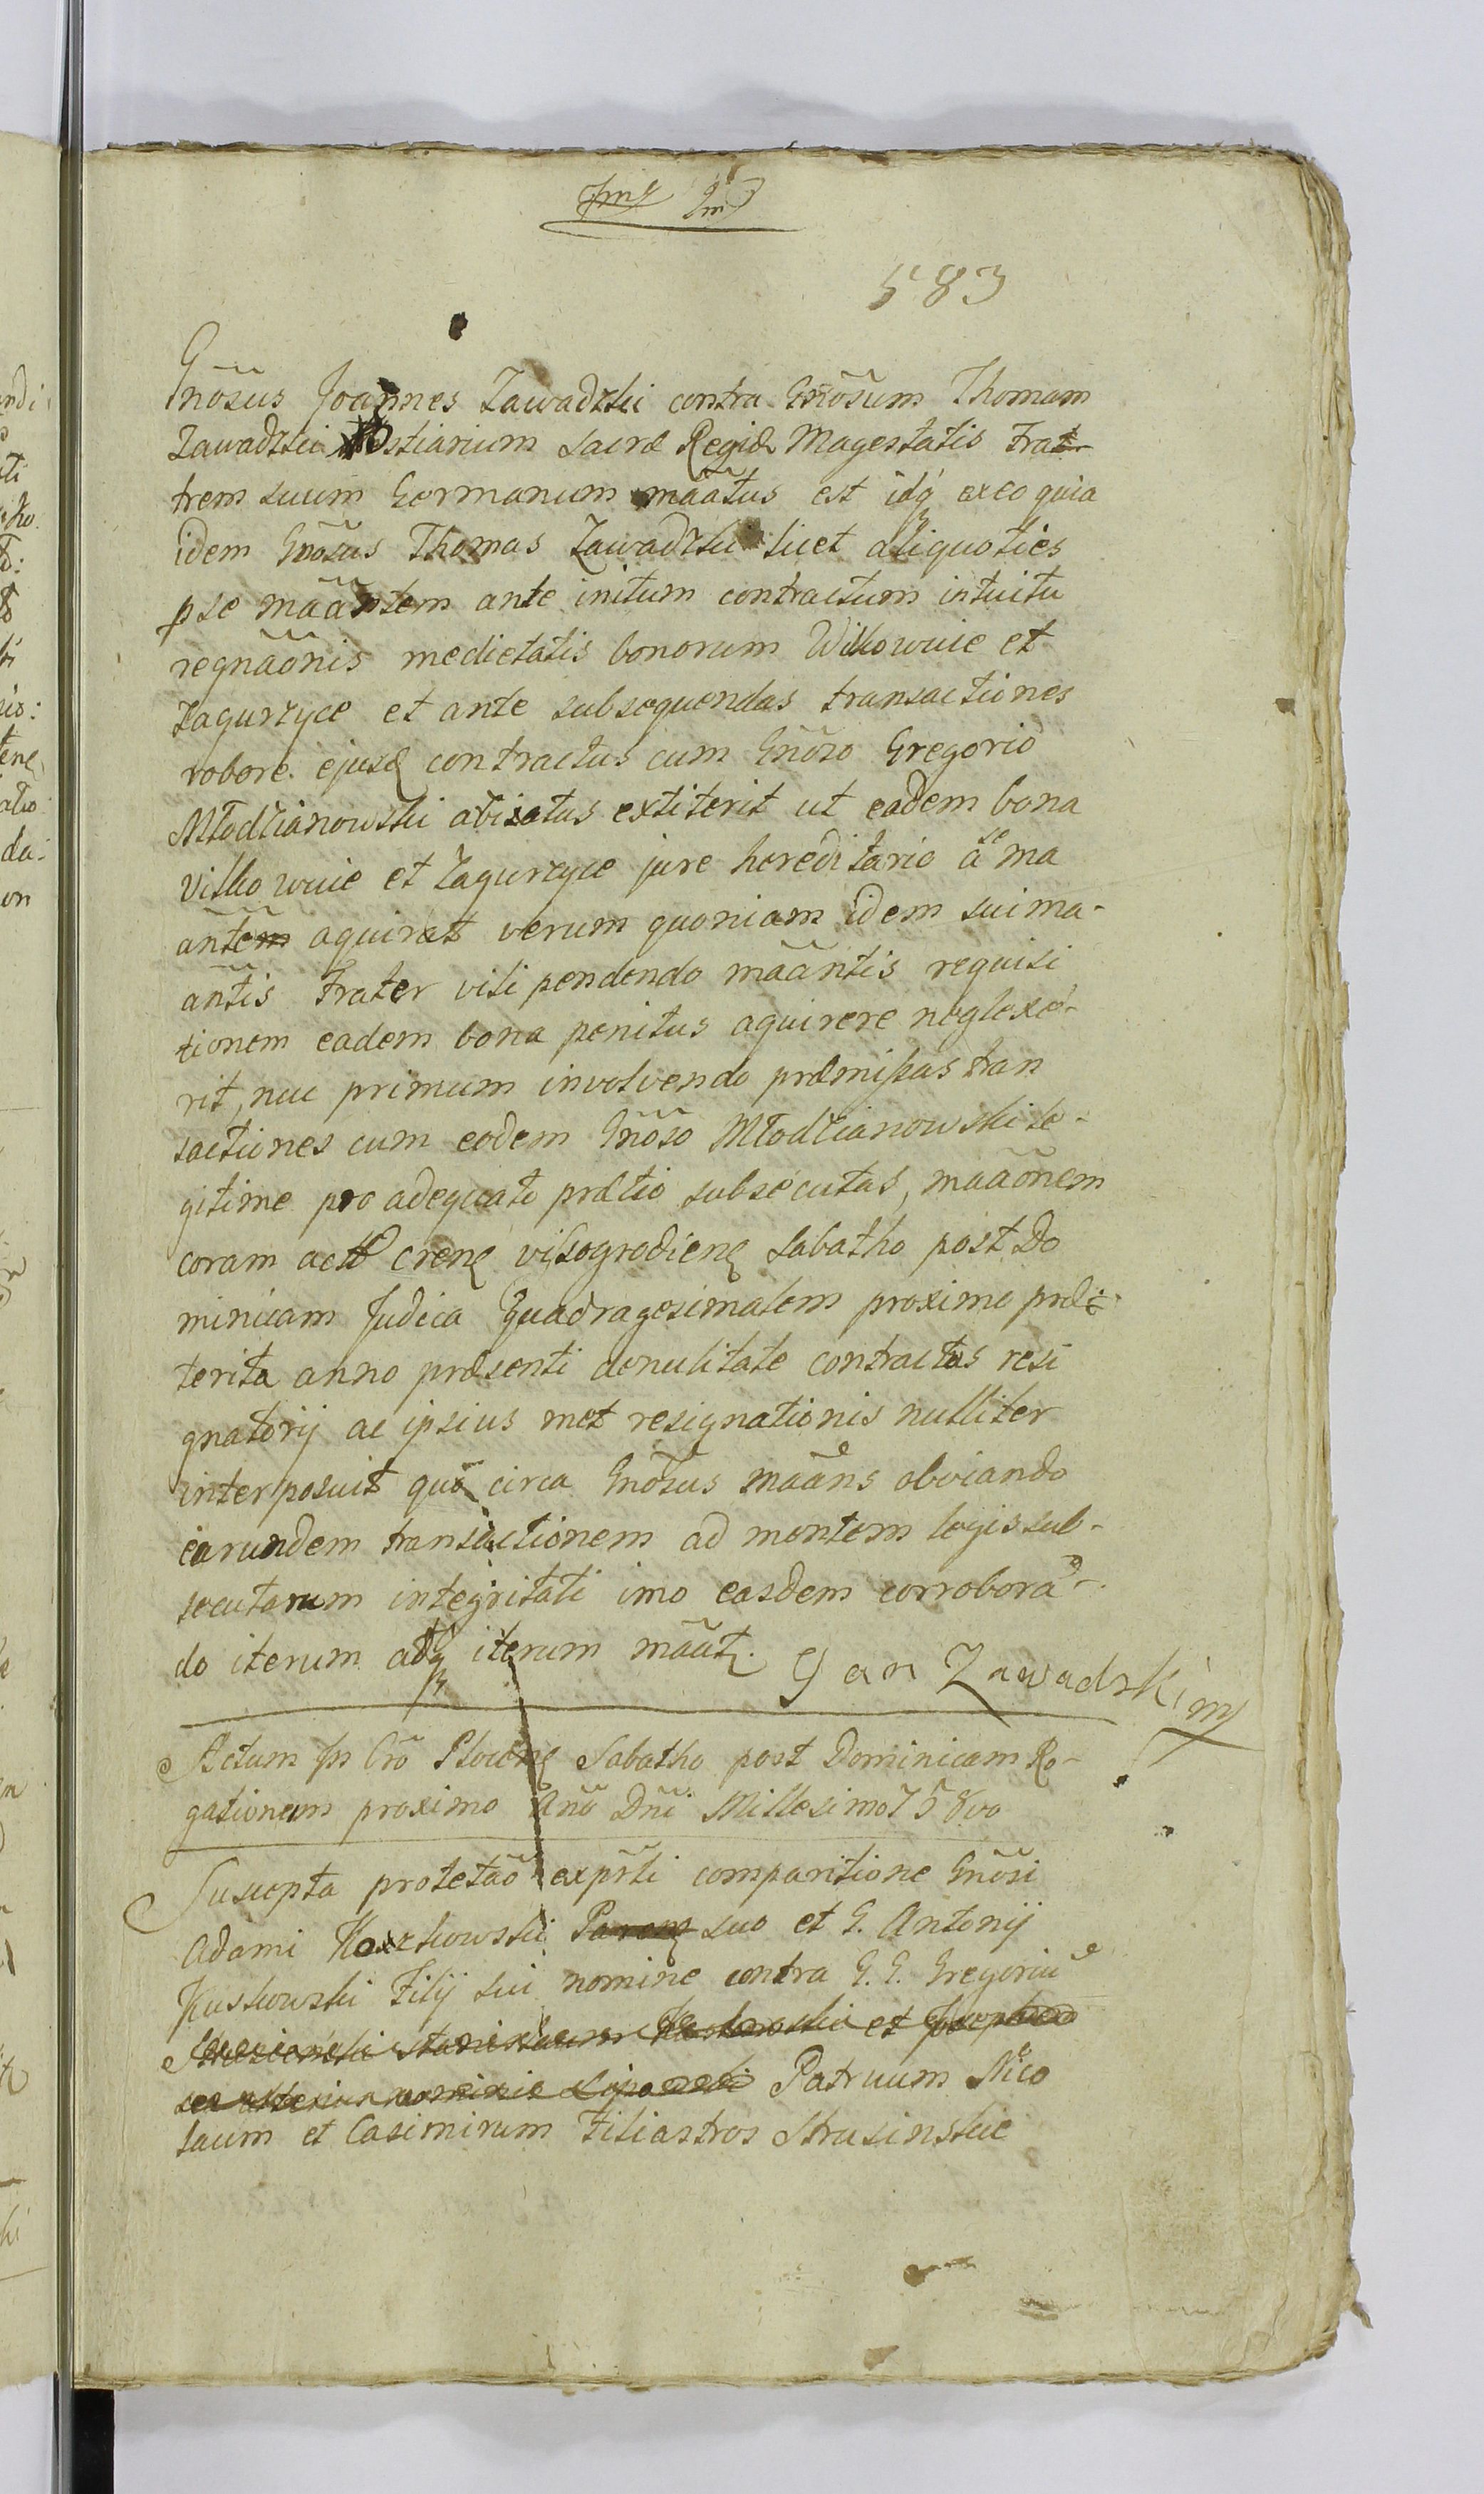 583
Gnõsus Joannes Zawadzki contra Gnõsum Thomam
Zawadzki Ostiarium Sacræ Regiæ Magestatis Frat-
trem suum Germanum mããtus est idq̃ ex eo quia
idem Gnõsus Thomas Zawadzki licet aliquoties
p se mããntem ante initum contractum intuitu
regnãõnis medietatis bonorum Wilkowuie et
Zagurzyce et ante subsequendas transactiones
robore ejusd contractus cum Gnõso Gregorio
Młodzianowski avisatus extiterit ut eadem bona
Vilkowuie et Zagurzyce jure hereditario a se ma
ãntem aquirat verum quoniam idem sui ma-
ãntis Frater vili pendendo mããntis requisi
tionem eadem bona penitus aquirere neglexe-
rit, nuc primum involvendo præmissas tran
sactiones cum eodem Gnõso Młodzianowski le-
gitime pro adequato prætio subsecutas, mããõnem
coram actis Crens vissogrodiens Sabatho post Do
minicam Judica Quadragesimalem proximo præ-
terita anno præsenti de nulitate contractus resi
gnatorij ac ipsius met resignationis nulliter
interposuit quo circa Gnõsus mããns obviando
earundem transactionem ad mentem legis sub-
secutarum integritati imo easdem corrobora-
do iterum atq iterum mããt. Jan Zawadzki mp
Actum in Crõ Plocens Sabatho post Dominicam Ro-
gationum proximo Anõ Dñi Millesimo 7580
Suscepta protetãõ ex pñti comparitione Gnõsi
Adami Koszkowski suo et G. Antonij
Kuskowski Filij sui nomine contra G. G. Gregoriu
et Josephum
Patruum Nico
laum et Casimirum Filiastros Strusinskie